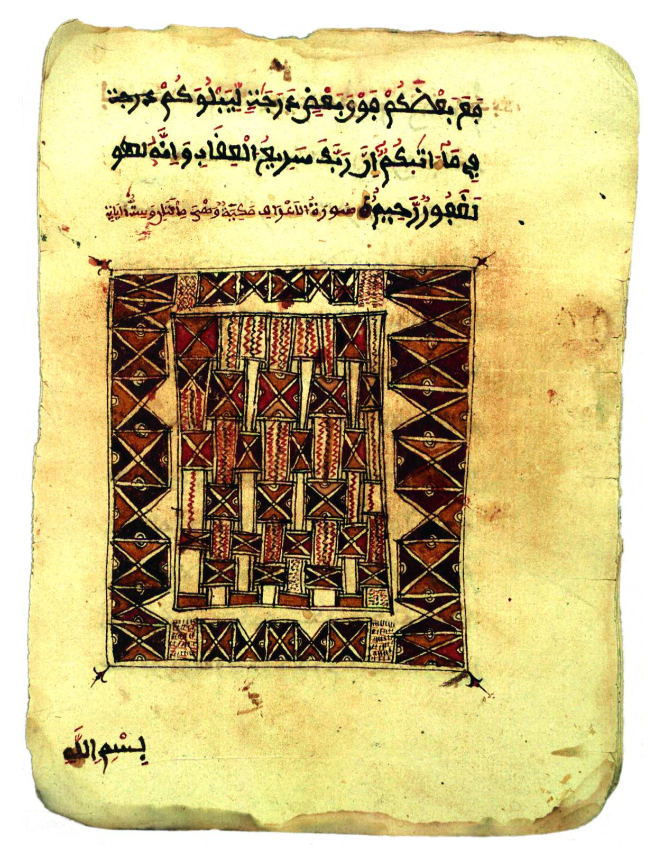 فع بَعْضَكُمْ فَوْقَ بَعْضٍ دَرَجَتٍ لِّيَبْلُوَكُمْ درجت
فِي مَآ اتَيكُمُ إِنَّ رَبَّكَ سَرِيعُ الْعِقَابِ وَإِنَّهُ لغفو
لَغَفُورٌ رَّحِيمٌ سورة الاعراف مكية وهي مائتان وستة اياة
بِسْمِ اللَّهِ